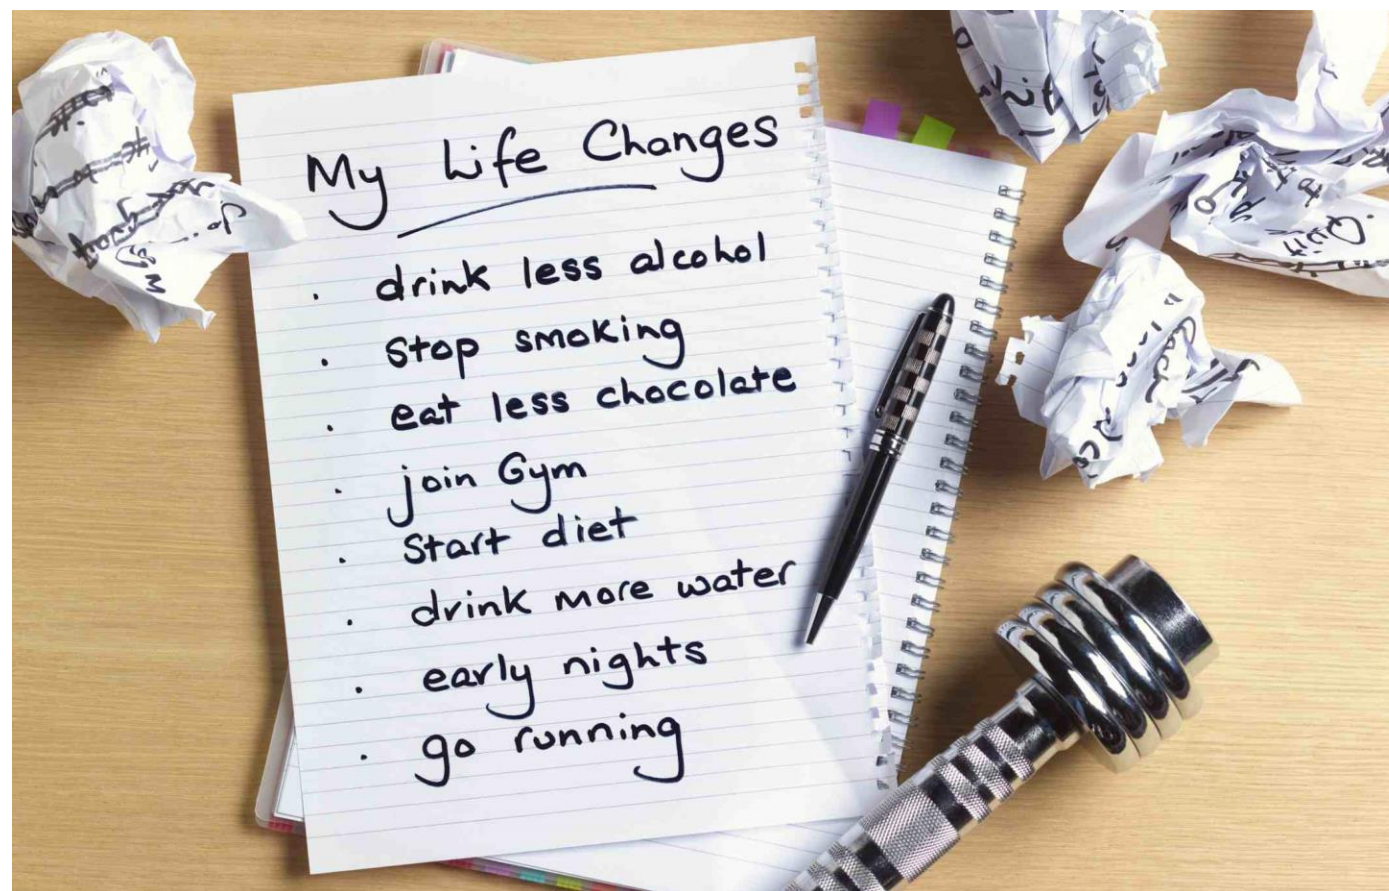 My Life Changes
· drink less alcohol
· stop smoking
· eat less chocolate
· join Gym
· Start diet
· drink more water
· early nights
· go running
Quit